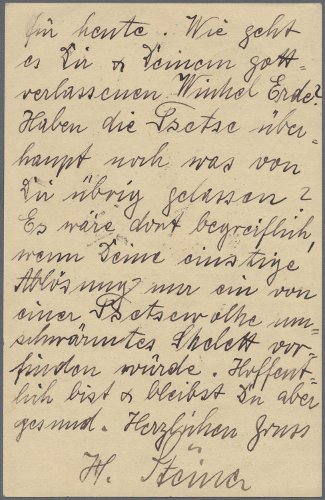 für heute. Wie geht
es Dir & Deinem gott-
verlassenen Winkel Erde?
Haben die Tsetse über-
haupt noch was von
Dir übrig gelassen?
Es wäre dort begreiflich,
wenn Deine einstige
Ablösung nur ein von
einer Tsetsewolke um-
schwärmtes Skelett vor-
finden würde. Hoffent-
lich bist & bleibst Du aber
gesund. Herzlichen Gruss
H. Steiner